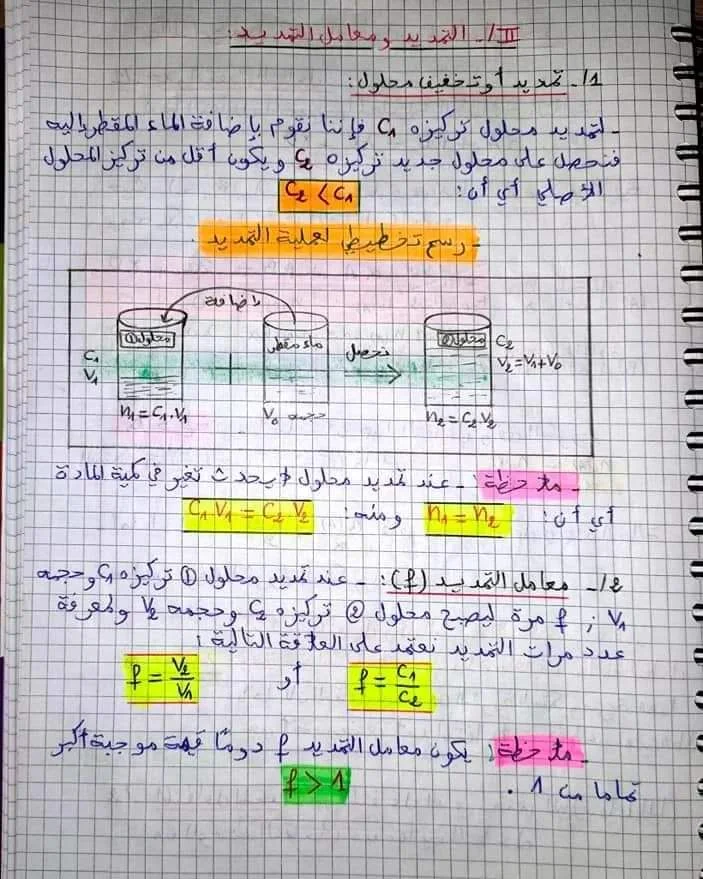 III/- التمديد ومعامل التمديد:
1/- تمديد أو تخفيف محلول:
- لتمديد محلول تركيزه C₁ فإننا نقوم بإضافة الماء المقطر إليه
فنحصل على محلول جديد تركيزه C₂ ويكون أقل من تركيز المحلول
الأصلي أي أن: C₂ < C₁
- رسم تخطيطي لعملية التمديد.
إضافة
محلول ① ماء مقطر نحصل محلول ② C₂
C₁ + V₂ = V₁ + V₀
V₁
n₁ = C₁.V₁ V₀ حجمه n₂ = C₂.V₂
- ملاحظة: - عند تمديد محلول لا يحدث تغير في كمية المادة
أي أن: n₁ = n₂ ومنه: C₁.V₁ = C₂.V₂
2/- معامل التمديد (f): - عند تمديد محلول ① تركيزه C₁ وحجمه
V₁ ; f مرة ليصبح محلول ② تركيزه C₂ وحجمه V₂ ولمعرفة
عدد مرات التمديد نعتمد على العلاقة التالية:
f = C₁/C₂ أو f = V₂/V₁
- ملاحظة: يكون معامل التمديد f دومًا قيمة موجبة أكبر
تماما من 1 .
f > 1